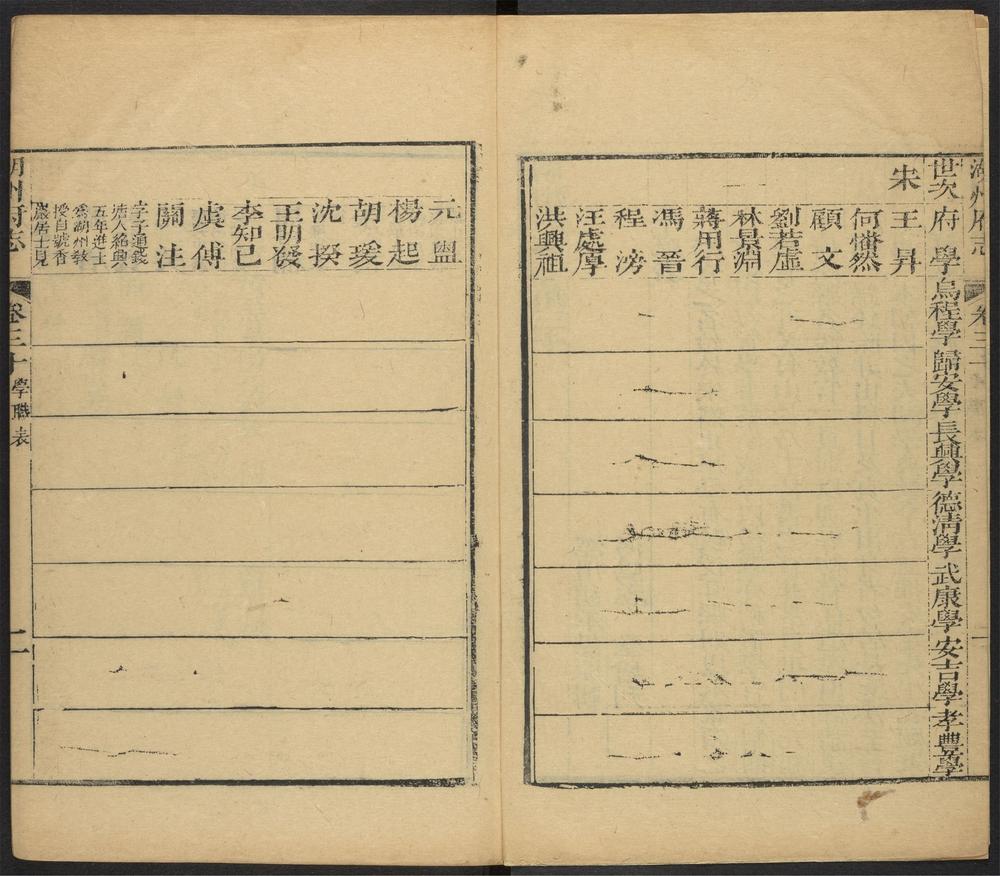 湖州府志 卷三十
世次 府學 烏程學 歸安學 長興學 德清學 武康學 安吉學 孝豐學
宋 王昇
何愭然
顧文
劉若虛
林景淵
蔣用行
馮晉
程滂
汪處厚
洪興祖
元盥
楊起
胡瑗
沈揆
王明發
李知己
虞傅
關注
字子通錢
塘人紹興
五年進士
為湖州敎
授自號香
巖居士見
湖州府志 卷三十 學職表 二